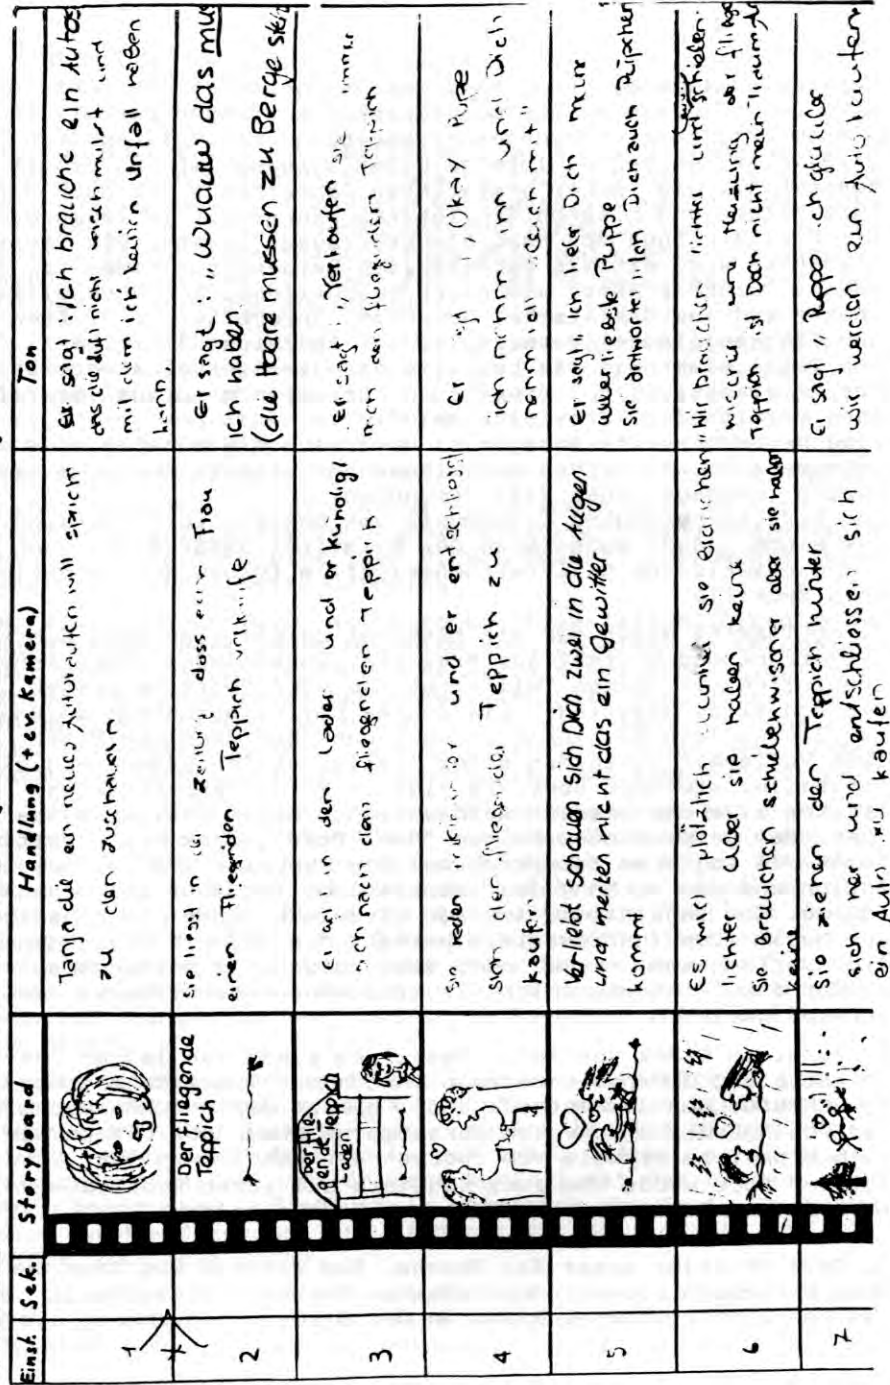 Einst. Sek. Storyboard Handlung (+ ev. Kamera) Ton
1
Tanja die ein neues Auto kaufen will spricht
zu den Zuschauern
Er sagt Ich brauche ein Autos
mit dem ich keinen Unfall haben
kann
2
Der fliegende
Teppich
Sie liesst in der Zeitung dass eine Frau
einen Fliegenden Teppich
Er sagt: „Whauw das mus
ich haben
(die Haare müssen zu Berge
3
Der flie-
gende Teppich
laden
in den Laden und erkundigt
sich nach dem fliegenden Teppich
Er sagt: „Verkaufen sie immer
noch den fliegenden Teppich
4
sie reden miteinander und er entschliesst
sich den fliegenden Teppich zu
kaufen
Er sagt: „Okay Pupe
ich nimm ihn und Dich
nimm ich gerade mit"
5
Verliebt schauen sich Dich zwei in die Augen
und merken nicht das ein Gewitter
kommt
Er sagt ich liebe Dich meine
allerliebste Puppe
Sie antwortet ich Dich auch Püpchen
6
Es wird plötzlich dunkel sie Brauchen
lichter aber sie haben keine
Sie brauchen scheibenwischer aber sie haben
keine
„Wir brauchen lichter und Scheiben-
wischer
Teppich ist Doch nicht mein Traumauto
7
Sie sehen der Teppich hunter
sich her und entschliessen sich
ein Auto zu kaufen
Er sagt „Puppe ich glaube
wir würden ein Auto kaufen